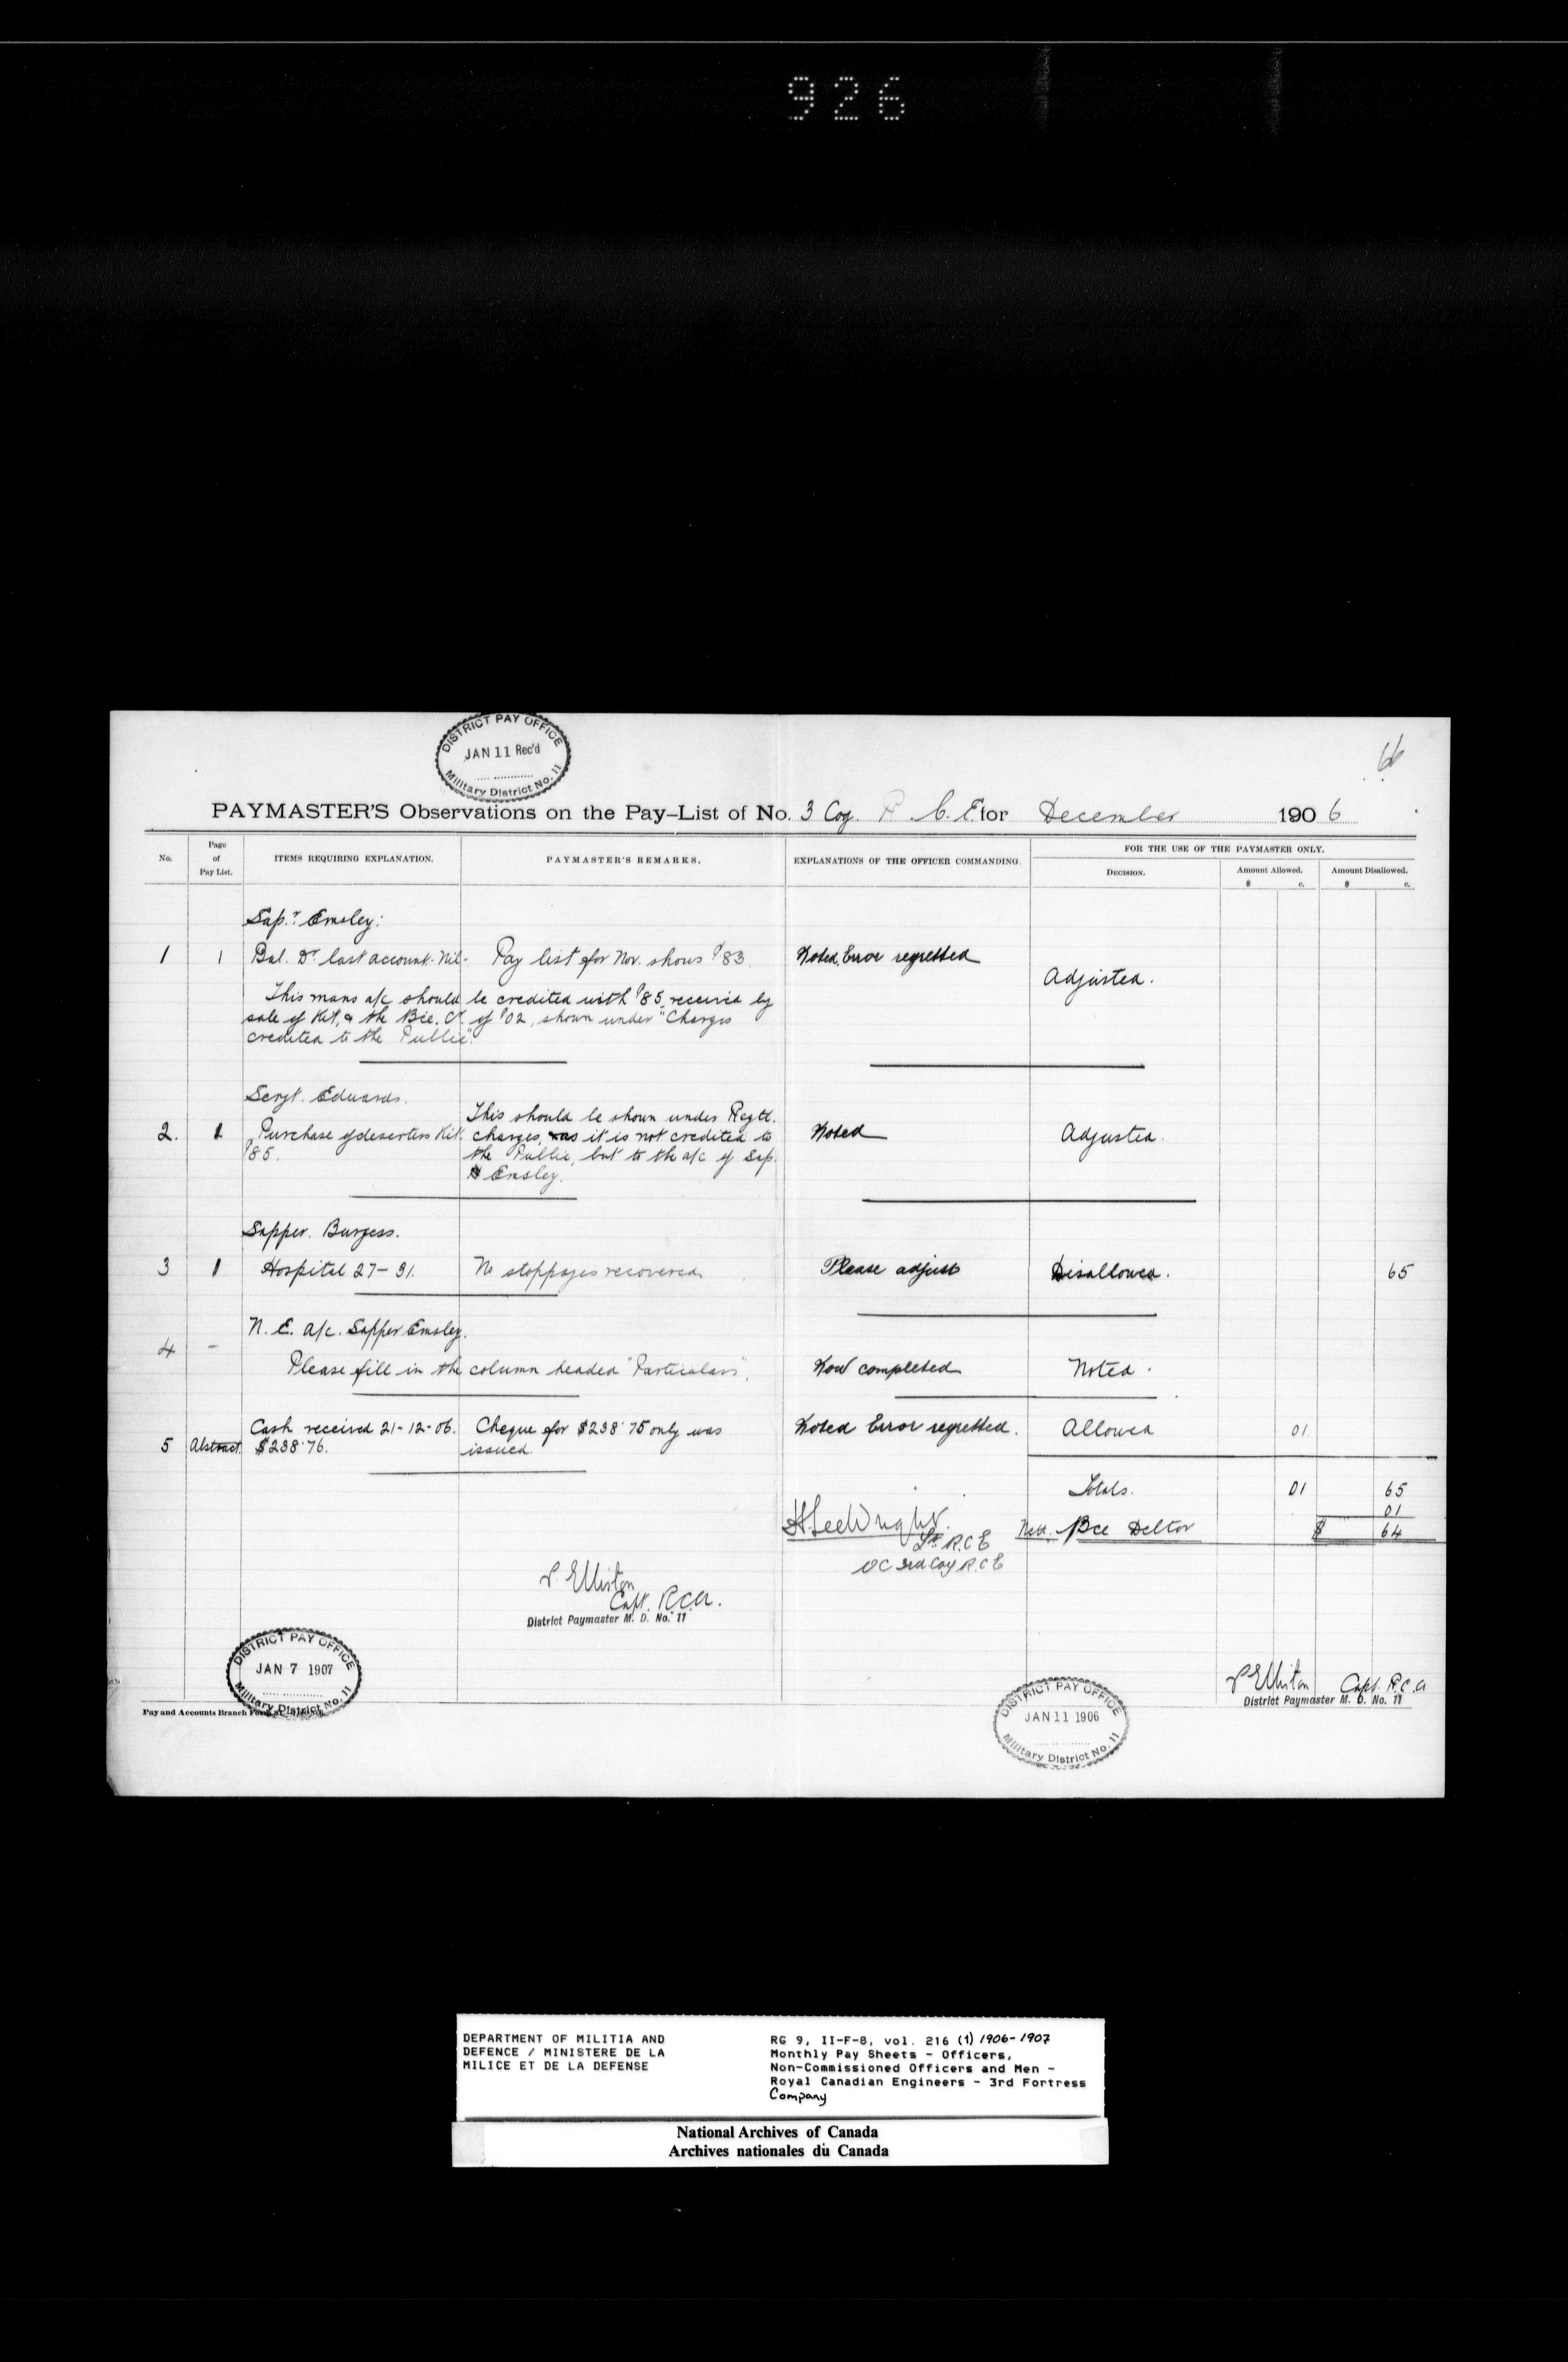 926
DISTRICT PAY OFFICE
JAN 11 Rec'd
Military District No. 11
66
PAYMASTER'S Observations on the Pay-List of No. 3 Coy. R. C. E. for December 1906
No.
Page of Pay List.
ITEMS REQUIRING EXPLANATION.
PAYMASTER'S REMARKS.
EXPLANATIONS OF THE OFFICER COMMANDING.
FOR THE USE OF THE PAYMASTER ONLY.
DECISION.
Amount Allowed.
Amount Disallowed.
$ c. $ c.
Sapr. Emsley:
1 1 Bal. Dr last account. Nil- Pay list for Nov. shows $.83. Noted, Error regretted Adjusted.
This mans a/c should be credited with $.85, received by
sale of Kit, & the Bce. Cr. of $.02, shown under "Charges
credited to the Public".
Sergt. Edwards.
2. 1 Purchase of deserters Kit. $.85.
This should be shown under Regtl.
charges, as it is not credited to
the Public, but to the a/c of Sap.
Emsley.
Noted Adjusted.
Sapper. Burgess.
3 1 Hospital 27-31. No stoppages recovered. Please adjust Disallowed. 65
N. E. a/c. Sapper Emsley.
4 - Please fill in the column headed "Particulars". Now completed Noted.
5 Abstract Cash received 21-12-06. $238.76.
Cheque for $238.75 only was
issued.
Noted Error regretted. Allowed 01
Totals. 01 65
01
Nett. Bce Debtor $ 64
H. Lee Wright.
Lt. R.C.E
OC 3rd Coy R.C.E
P. Elliston
Capt. R.C.A.
District Paymaster M. D. No. 11
DISTRICT PAY OFFICE
JAN 7 1907
Military District No. 11
Pay and Accounts Branch Form
DISTRICT PAY OFFICE
JAN 11 1906
Military District No. 11
P. Elliston Capt. R.C.A
District Paymaster M. D. No. 11
DEPARTMENT OF MILITIA AND
DEFENCE / MINISTERE DE LA
MILICE ET DE LA DEFENSE
RG 9, II-F-8, vol. 216 (1) 1906-1907
Monthly Pay Sheets - Officers,
Non-Commissioned Officers and Men -
Royal Canadian Engineers - 3rd Fortress
Company
National Archives of Canada
Archives nationales du Canada